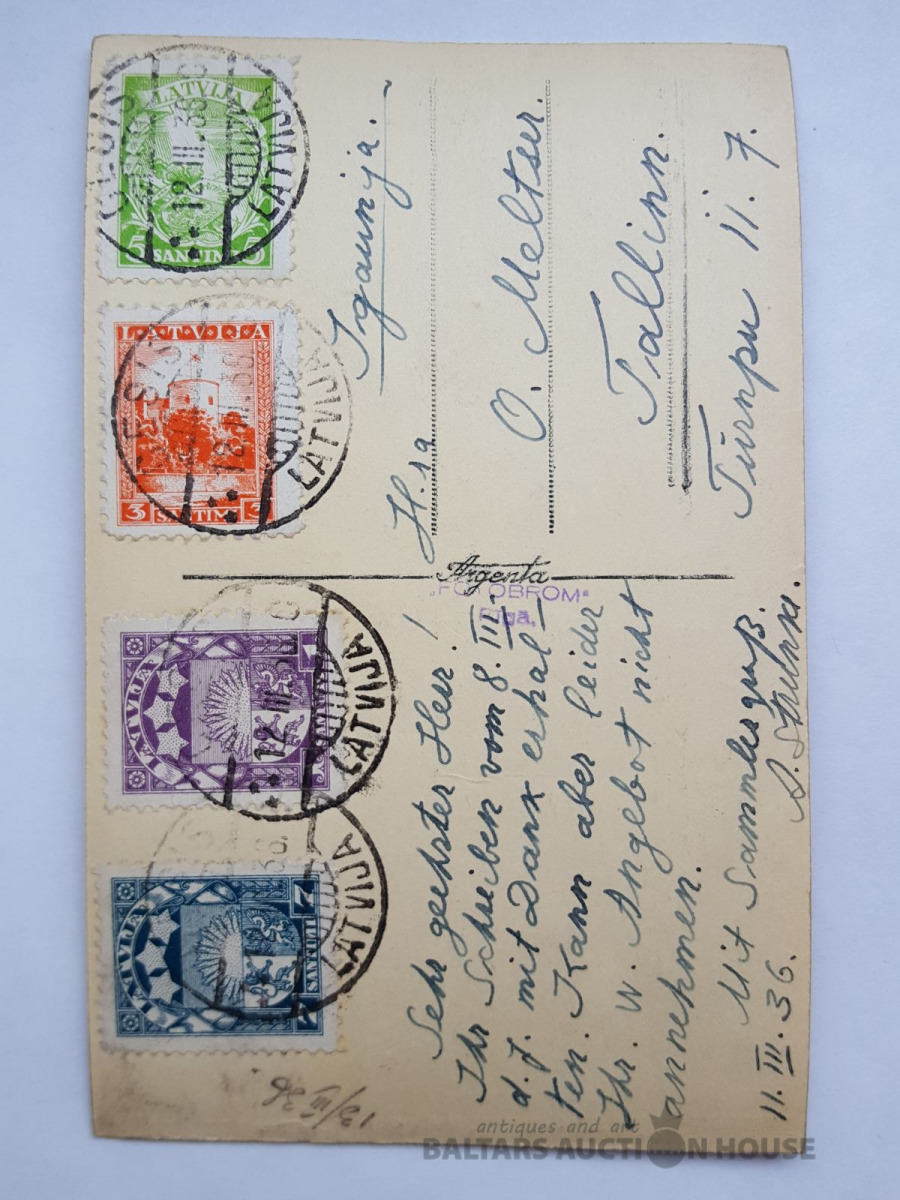 LATVIJA
5 SANTIMI 5
12.III.36
LATVIJA
LATVIJA
3 SANTIMI 3
LATVIJA
LATVIJA
1
12.III.36
LATVIJA
LATVIJA
2 SANTIMI 2
LATVIJA
Igaunija.
H-ra
O. Meltser.
Tallinn.
Türnpu ii. 7.
Argenta
"FOTOBROM"
Rīgā.
Sehr geehrter Herr!
Ihr Schreiben vom 8.III.
d. J. mit Dank erhal-
ten. Kann aber leider
Ihr. w Angebot nicht
annehmen.
Mit Sammlergruß.
11.III.36.
13/III 36
antiques and art
BALTARS AUCTION HOUSE